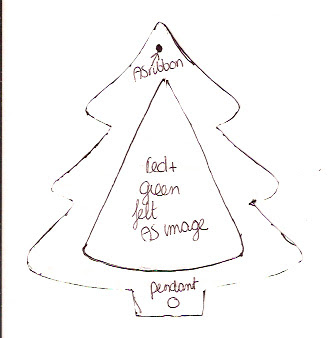 AS ribbon
red +
green
felt
AS image
pendant